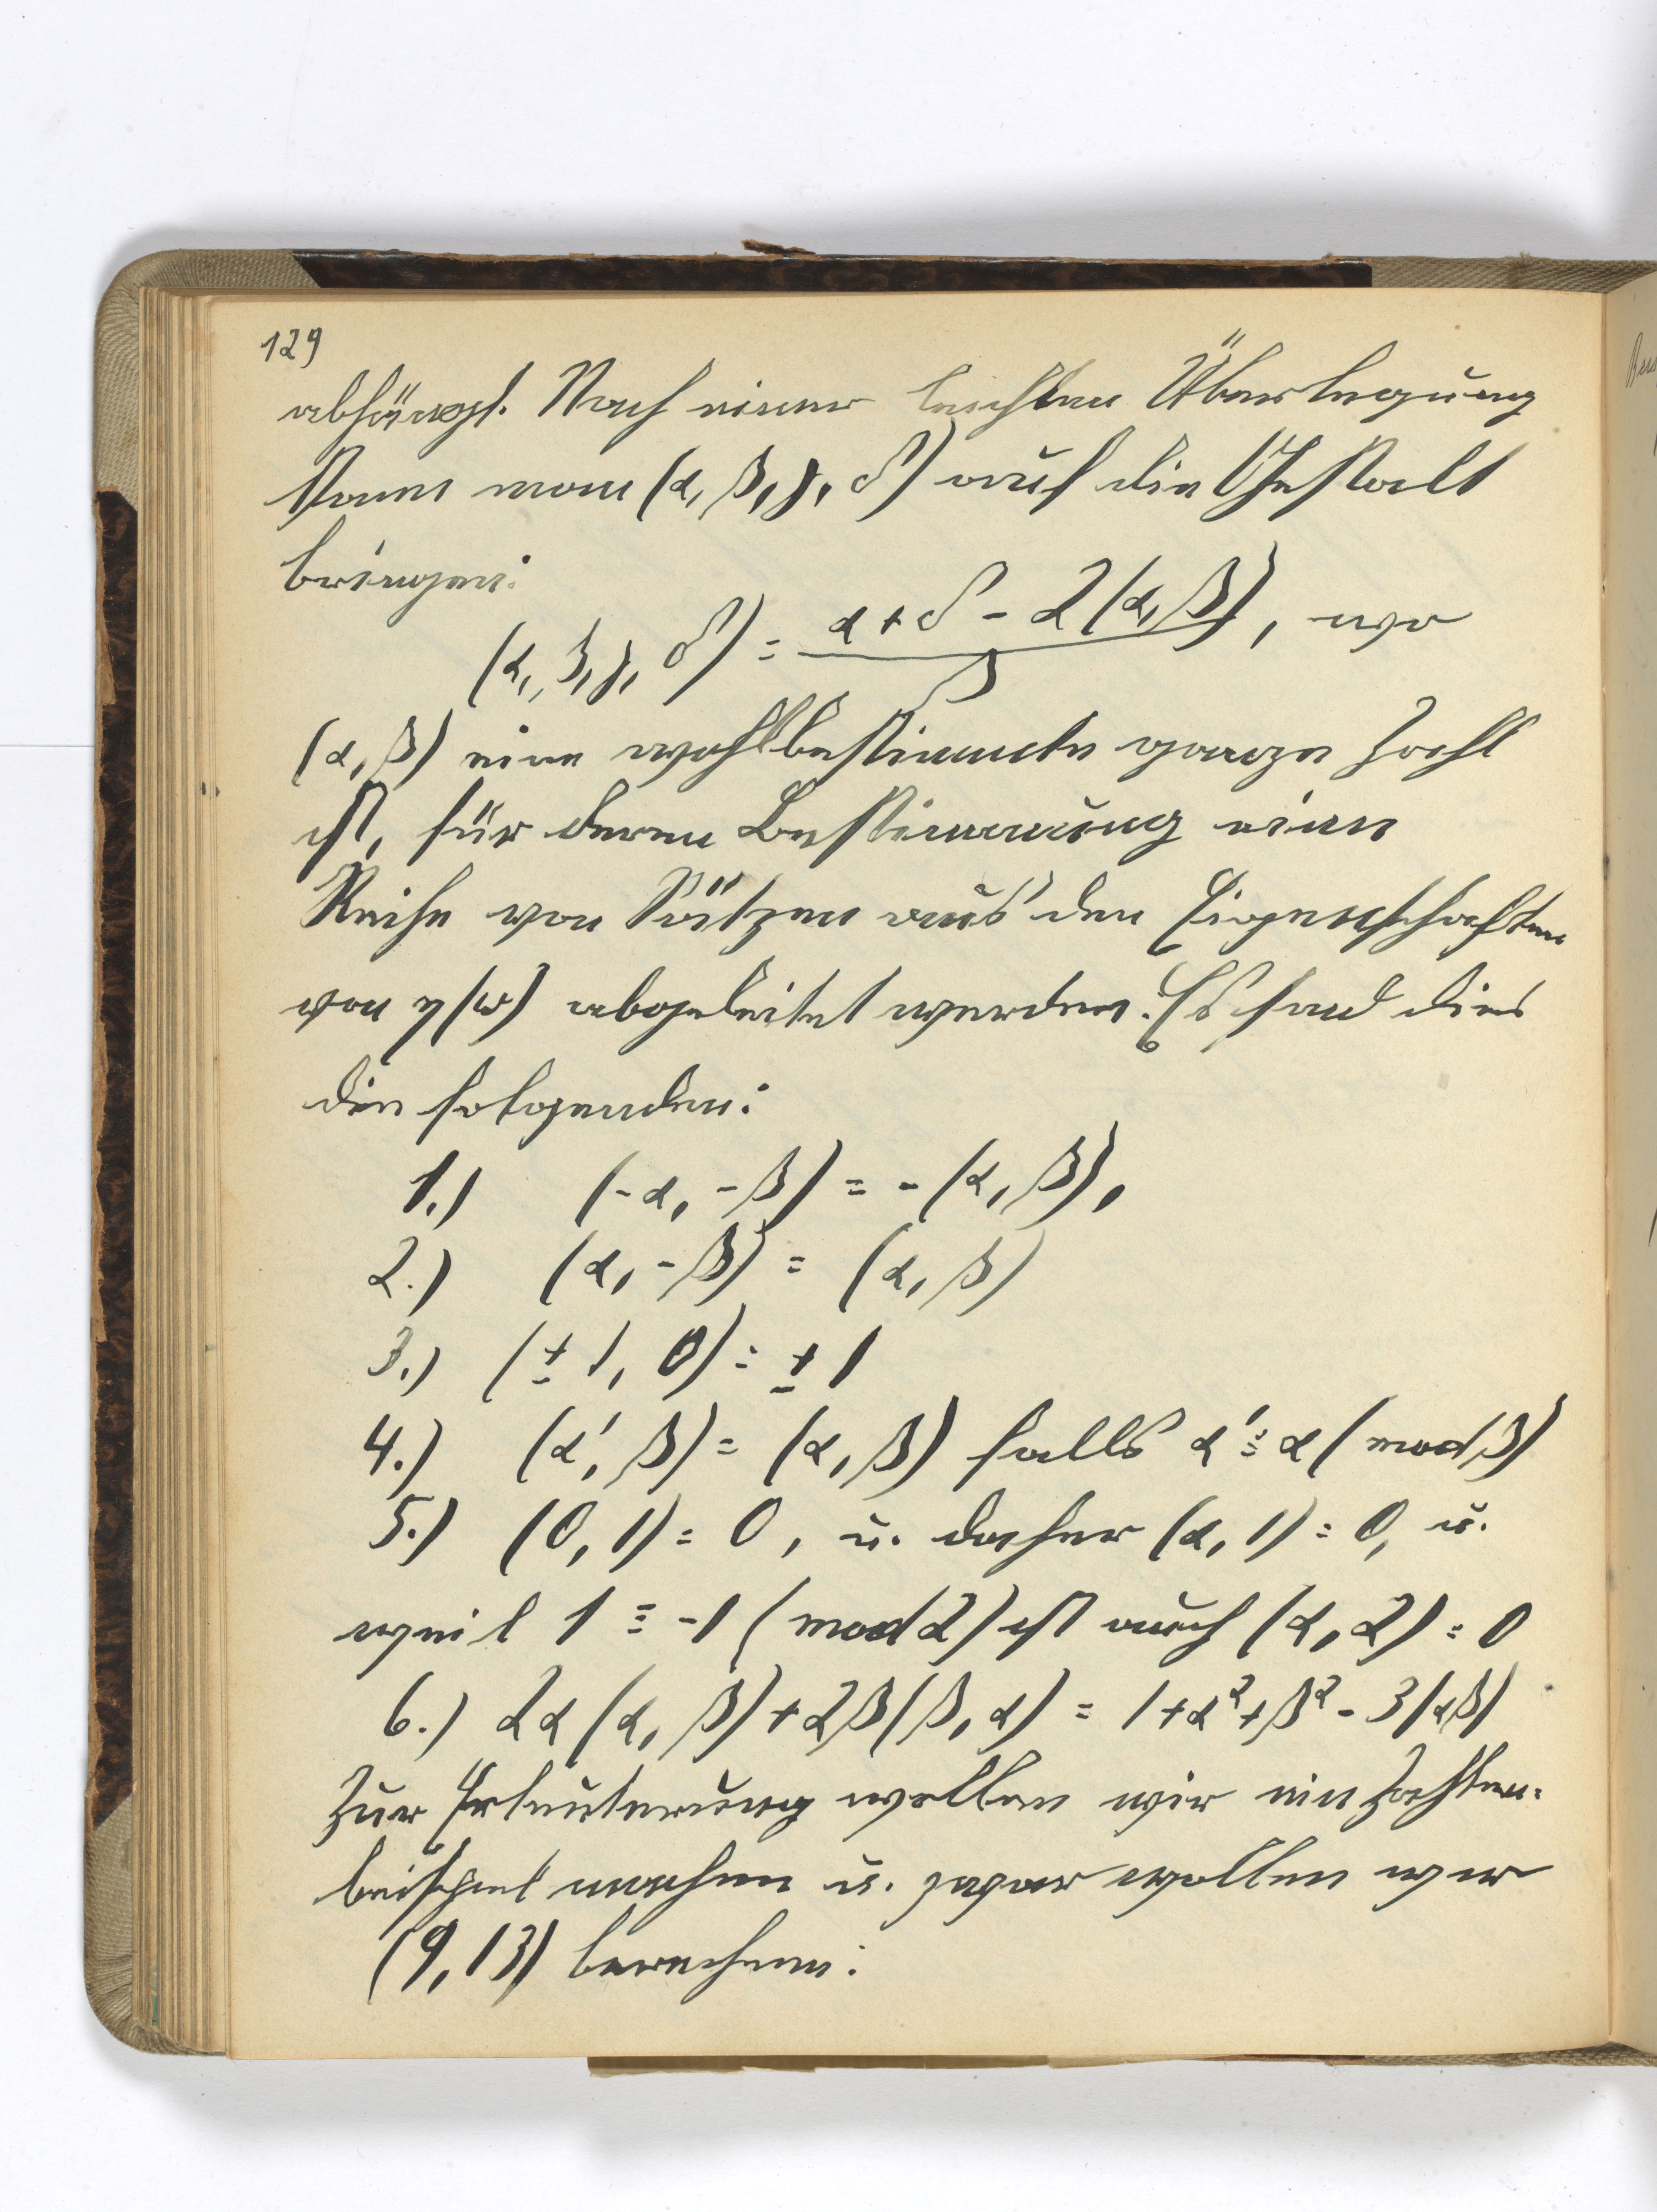 129
abhängt. Nach einer leichten Überlegung
kann man (α, β, γ, δ) auf die Gestalt
bringen:
(α, β, γ, δ) = (α + δ - 2(α, β)) / β, wo
(α, β) eine wohlbestimmte ganze Zahl
ist, für deren Bestimmung eine
Reihe von Sätzen aus den Eigenschaften
von η(ω) abgeleitet werden. Es sind dies
die folgenden:
1.) (-α, -β) = -(α, β),
2.) (α, -β) = (α, β)
3.) (± 1, 0) = ± 1
4.) (α', β) = (α, β) falls α' ≡ α (mod β)
5.) (0, 1) = 0, u. daher (α, 1) = 0, u.
weil 1 ≡ -1 (mod 2) ist auch (α, 2) = 0
6.) 2α(α, β) + 2β(β, α) = 1 + α² + β² - 3|αβ|
Zur Erläuterung wollen wir ein Zahlen-
beispiel machen u. zwar wollen wir
(9, 13) berechnen: